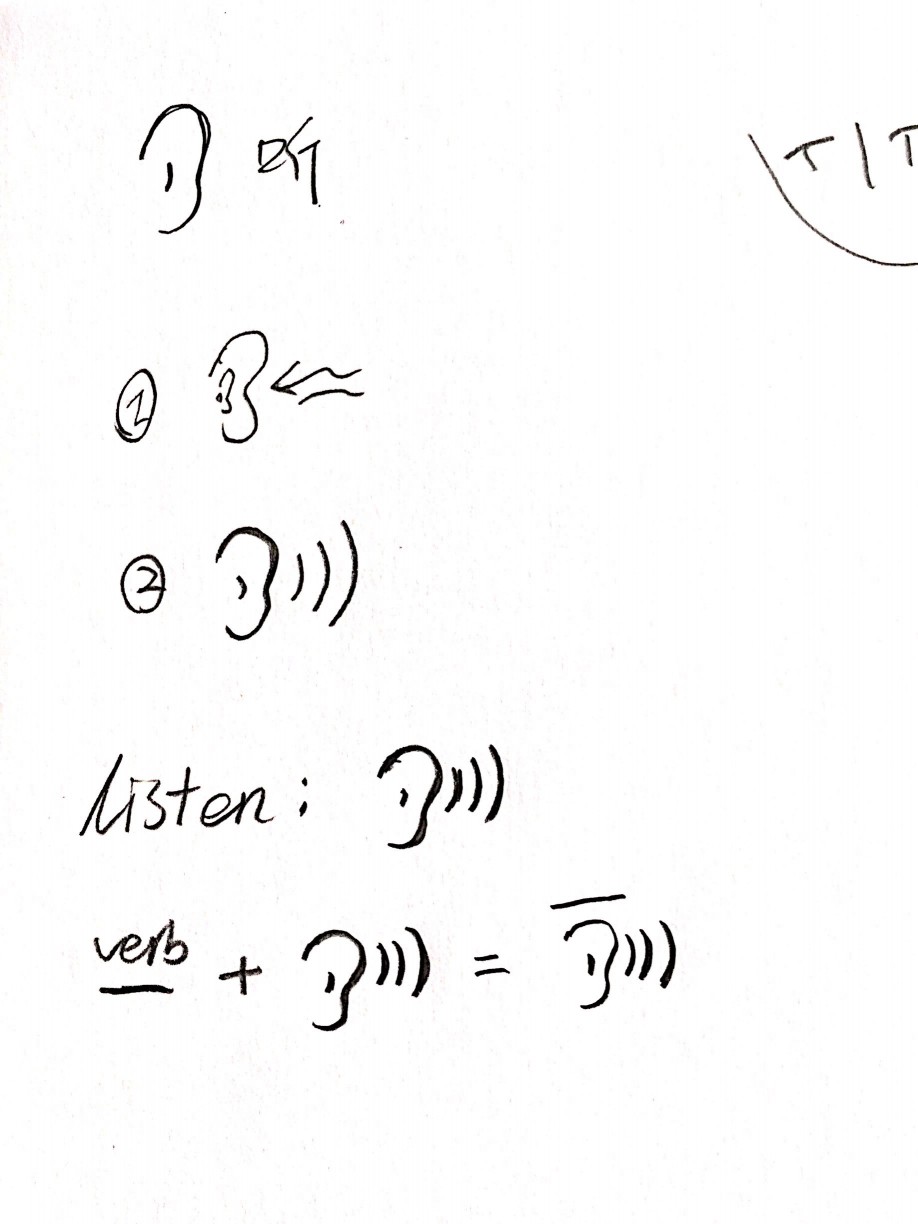 听
T/T
①
②
Listen:
verb + =